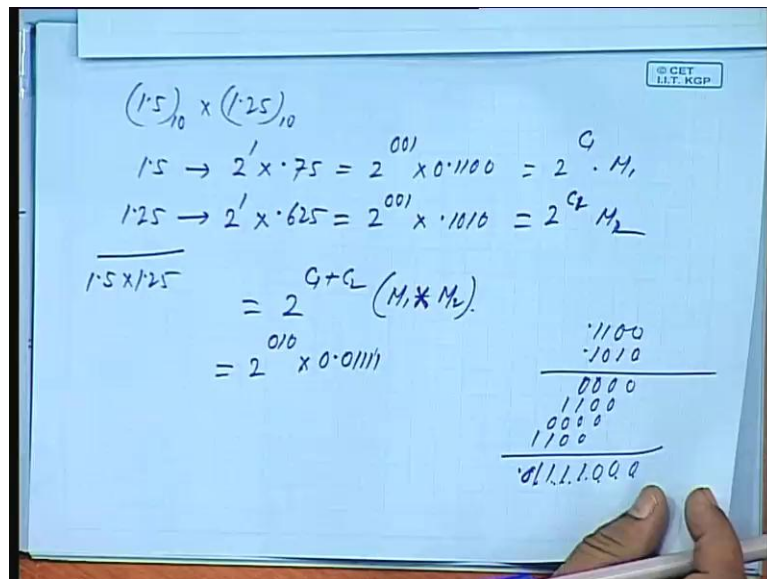 © CET
I.I.T. KGP
(1.5)₁₀ × (1.25)₁₀
1.5 → 2¹ × .75 = 2⁰⁰¹ × 0.1100 = 2^C₁ . M₁
1.25 → 2¹ × .625 = 2⁰⁰¹ × .1010 = 2^C₂ M₂
1.5 × 1.25
= 2^C₁+C₂ (M₁ * M₂).
= 2⁰¹⁰ × 0.01111
.1100
.1010
0000
1100
0000
1100
.01111000